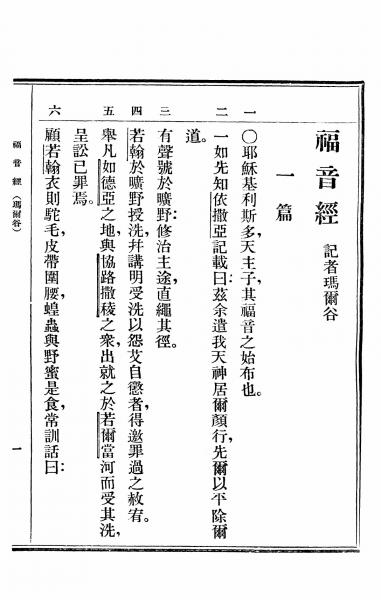 福音經 記者瑪爾谷
一篇
一 〇耶穌基利斯多,天主子,其福音之始布也。
二 一如先知依撒亞記載曰:茲余遣我天神居爾顏行,先爾以平除爾
道。
三 有聲號於曠野:修治主途,直繩其徑。
四 若翰於曠野授洗,幷講明受洗以怨艾自懲者,得邀罪過之赦宥。
五 舉凡如德亞之地,與協路撒稜之衆,出就之於若爾當河而受其洗,
呈訟己罪焉。
六 顧若翰衣則駝毛,皮帶圍腰,蝗蟲與野蜜是食,常訓話曰:
福音經(瑪爾谷) 一